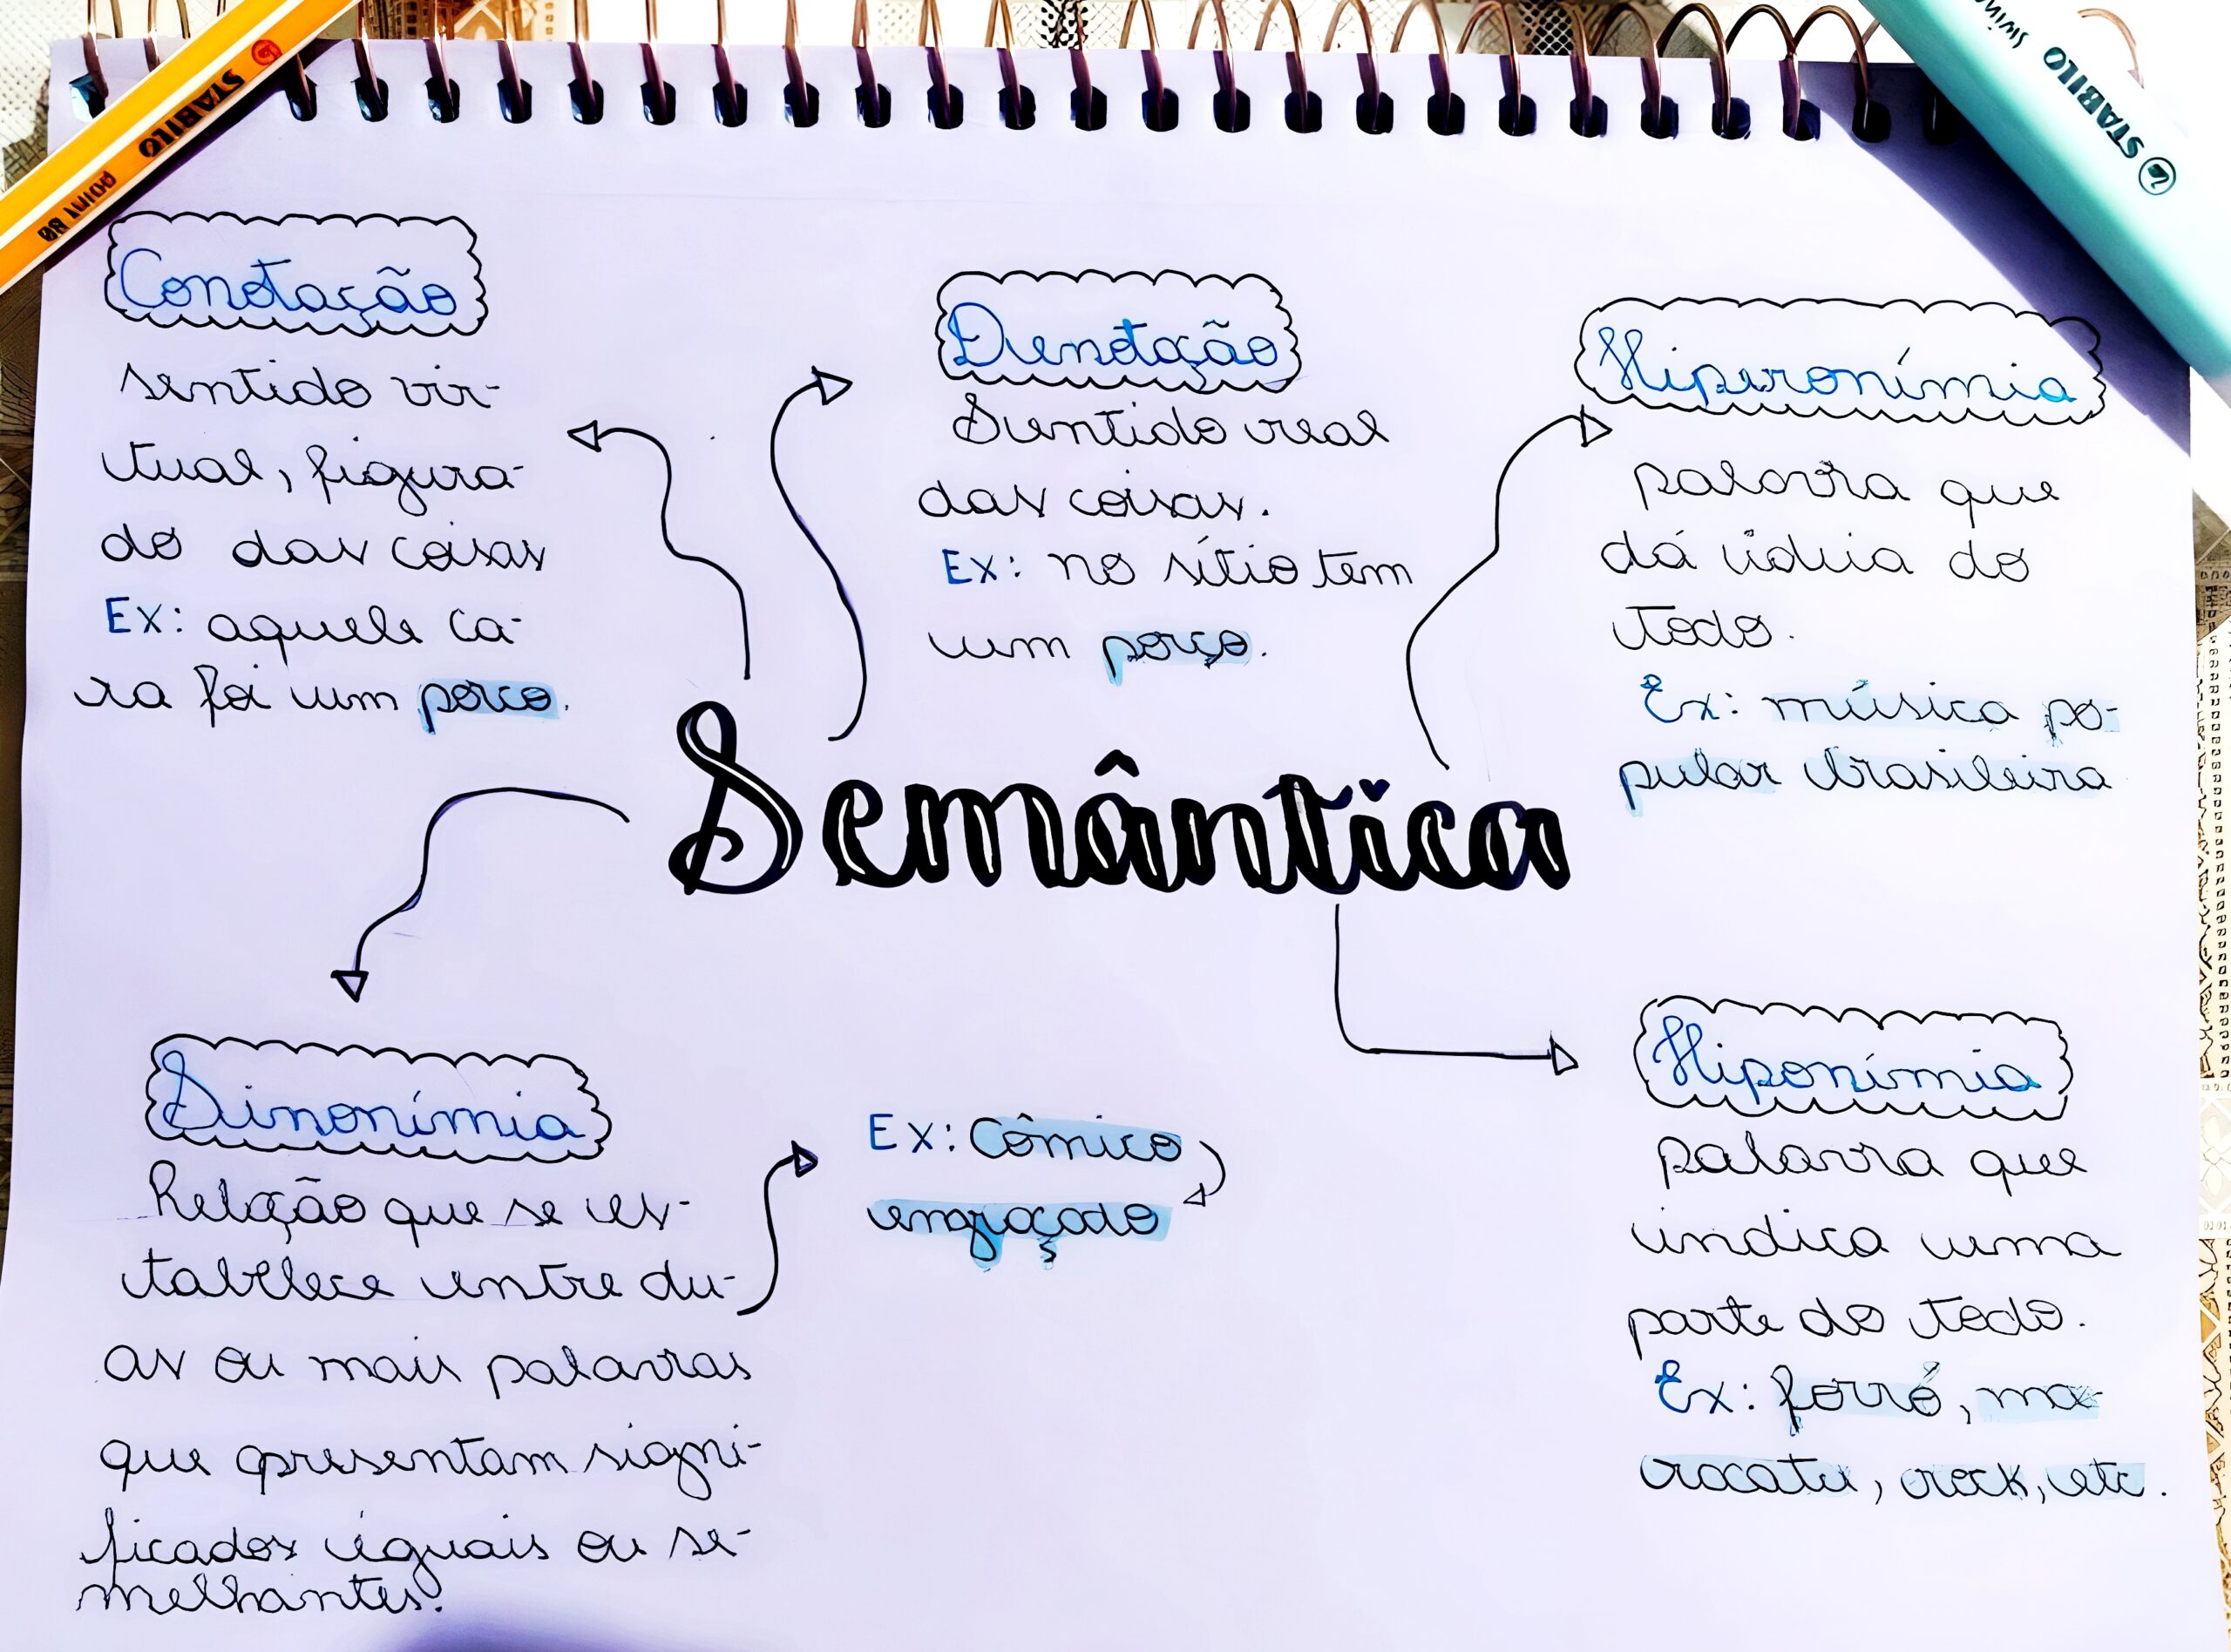 STABILO
point 88
STABILO
swing
Conotação
sentido vir-
tual, figura-
do das coisas
Ex: aquele ca-
ra foi um porco.
Denotação
Sentido real
das coisas.
Ex: no sítio tem
um porço.
Hiperonímia
palavra que
dá ideia do
todo.
Ex: música po-
pular brasileira
Semântica
Sinonímia
Relação que se es-
tabelece entre du-
as ou mais palavras
que apresentam signi-
ficados iguais ou se-
melhantes.
Ex: Cômico
engraçado
Hiponímia
palavra que
indica uma
parte do todo.
Ex: forró, ma-
racatu, rock, etc.